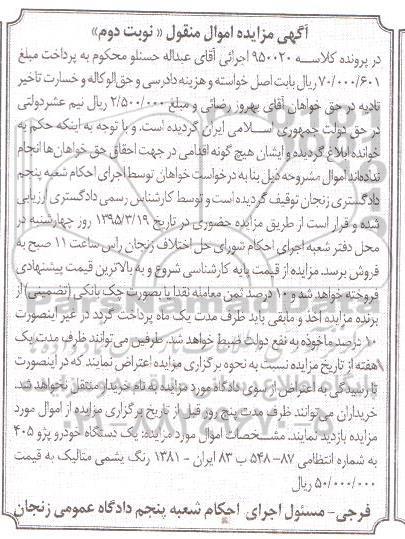 آگهی مزایده اموال منقول « نوبت دوم»
در پرونده کلاسه ۹۵۰۰۲۰ اجرائی آقای عبداله حسنلو محکوم به پرداخت مبلغ
۷۰/۰۰۰/۶۰۱ ریال بابت اصل خواسته و هزینه دادرسی و حق‌الوکاله و خسارت تاخیر
تادیه در حق خواهان آقای بهروز رضائی و مبلغ ۲/۵۰۰/۰۰۰ ریال نیم عشر دولتی
در حق دولت جمهوری اسلامی ایران گردیده است. و با توجه به اینکه حکم به
خوانده ابلاغ گردیده و ایشان هیچ گونه اقدامی در جهت احقاق حق خواهان ها انجام
نداده‌اند اموال مشروحه ذیل بنا به درخواست خواهان توسط اجرای احکام شعبه پنجم
دادگستری زنجان توقیف گردیده است و توسط کارشناس رسمی دادگستری ارزیابی
شده و قرار است از طریق مزایده حضوری در تاریخ ۱۳۹۵/۳/۱۹ روز چهارشنبه در
محل دفتر شعبه اجرای احکام شورای حل اختلاف زنجان راس ساعت ۱۱ صبح به
فروش برسد. مزایده از قیمت پایه کارشناسی شروع و به بالاترین قیمت پیشنهادی
فروخته خواهد شد و ۱۰ درصد ثمن معامله نقدا یا بصورت چک بانکی (تضمینی) از
برنده مزایده اخذ و مابقی باید ظرف مدت یک ماه پرداخت گردد در غیر اینصورت
۱۰ درصد ماخوذه به نفع دولت ضبط خواهد شد. طرفین می‌توانند ظرف مدت یک
هفته از تاریخ مزایده نسبت به نحوه برگزاری مزایده اعتراض نمایند که در اینصورت
تا رسیدگی به اعتراض از سوی دادگاه مورد مزایده به نام خریدار منتقل نخواهد شد
خریداران می‌توانند ظرف مدت پنج روز قبل از تاریخ برگزاری مزایده از اموال مورد
مزایده بازدید نمایند. مشخصات اموال مورد مزایده: یک دستگاه خودرو پژو ۴۰۵
به شماره انتظامی ۸۷- ۵۴۸ ب ۸۳ ایران - ۱۳۸۱ رنگ یشمی متالیک به قیمت
۵۰/۰۰۰/۰۰۰ ریال
فرجی- مسئول اجرای احکام شعبه پنجم دادگاه عمومی زنجان